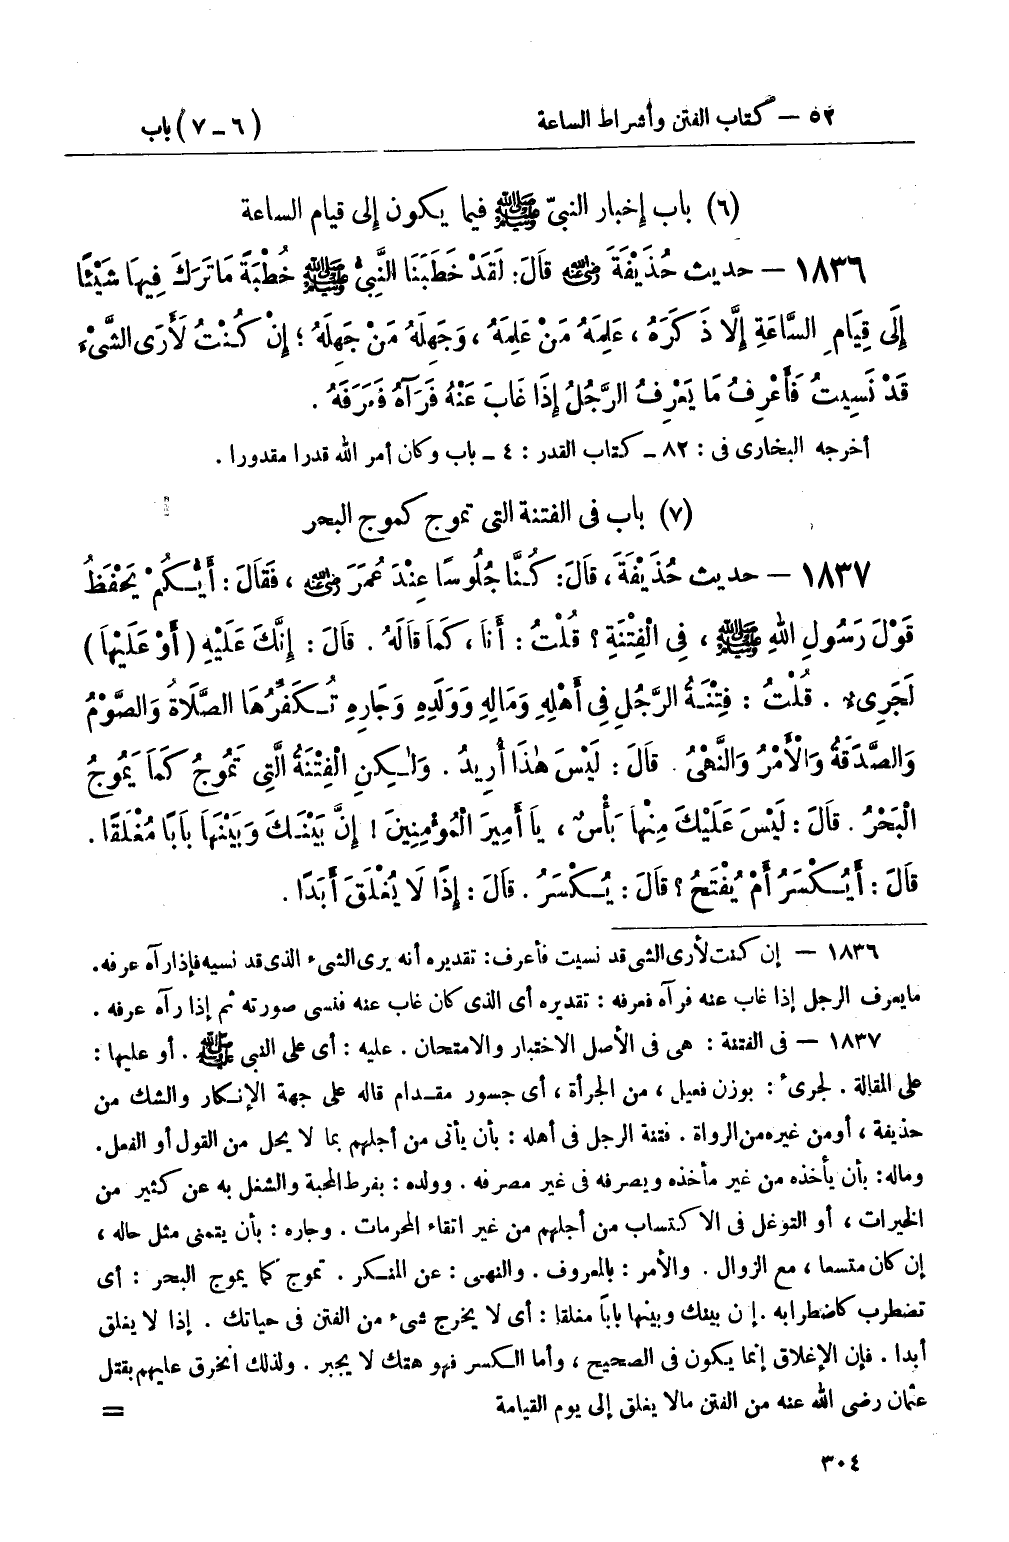 ٥٢ – كتاب الفتن وأشراط الساعة (٦ – ٧) باب
(٦) باب إخبار النبيّ ﷺ فيما يكون إلى قيام الساعة
١٨٣٦ – حديث حُذَيْفَةَ رضي الله عنه قَالَ: لَقَدْ خَطَبَنَا النَّبِيُّ ﷺ خُطْبَةً مَا تَرَكَ فِيهَا شَيْئًا
إِلَى قِيَامِ السَّاعَةِ إِلَّا ذَكَرَهُ، عَلِمَهُ مَنْ عَلِمَهُ، وَجَهِلَهُ مَنْ جَهِلَهُ؛ إِنْ كُنْتُ لَأَرَى الشَّىْءَ
قَدْ نَسِيتُ فَأَعْرِفُ مَا يَعْرِفُ الرَّجُلُ إِذَا غَابَ عَنْهُ فَرَآهُ فَعَرَفَهُ.
أخرجه البخارى فى: ٨٢ – كتاب القدر: ٤ – باب وكان أمر الله قدرا مقدورا.
(٧) باب فى الفتنة التى تموج كموج البحر
١٨٣٧ – حديث حُذَيْفَةَ، قَالَ: كُنَّا جُلُوسًا عِنْدَ عُمَرَ رضي الله عنه، فَقَالَ: أَيُّكُمْ يَحْفَظُ
قَوْلَ رَسُولِ اللهِ ﷺ، فِى الْفِتْنَةِ؟ قُلْتُ: أَنَا، كَمَا قَالَهُ. قَالَ: إِنَّكَ عَلَيْهِ (أَوْ عَلَيْهَا)
لَجَرِىءٌ. قُلْتُ: فِتْنَةُ الرَّجُلِ فِى أَهْلِهِ وَمَالِهِ وَوَلَدِهِ وَجَارِهِ تُكَفِّرُهَا الصَّلَاةُ وَالصَّوْمُ
وَالصَّدَقَةُ وَالْأَمْرُ وَالنَّهْىُ. قَالَ: لَيْسَ هٰذَا أُرِيدُ. وَلٰكِنِ الْفِتْنَةُ الَّتِى تَمُوجُ كَمَا يَمُوجُ
الْبَحْرُ. قَالَ: لَيْسَ عَلَيْكَ مِنْهَا بَأْسٌ، يَا أَمِيرَ الْمُؤْمِنِينَ! إِنَّ بَيْنَكَ وَبَيْنَهَا بَابًا مُغْلَقًا.
قَالَ: أَيُكْسَرُ أَمْ يُفْتَحُ؟ قَالَ: يُكْسَرُ. قَالَ: إِذًا لَا يُغْلَقَ أَبَدًا.
١٨٣٦ – إن كنت لأرى الشى قد نسيت فأعرف: تقديره أنه يرى الشىء الذى قد نسيه فإذا رآه عرفه.
ما يعرف الرجل إذا غاب عنه فرآه فعرفه: تقديره أى الذى كان غاب عنه فنسى صورته ثم إذا رآه عرفه.
١٨٣٧ – فى الفتنة: هى فى الأصل الاختبار والامتحان. عليه: أى على النبى ﷺ. أو عليها:
على المقالة. لجرىء: بوزن فعيل، من الجرأة، أى جسور مقدام قاله على جهة الإنكار والشك من
حذيفة، أو من غيره من الرواة. فتنة الرجل فى أهله: بأن يأتى من أجلهم بما لا يحل من القول أو الفعل.
وماله: بأن يأخذه من غير مأخذه ويصرفه فى غير مصرفه. وولده: بفرط المحبة والشغل به عن كثير من
الخيرات، أو التوغل فى الاكتساب من أجلهم من غير اتقاء المحرمات. وجاره: بأن يتمنى مثل حاله،
إن كان متسعا، مع الزوال. والأمر: بالمعروف. والنهى: عن المنكر. تموج كما يموج البحر: أى
تضطرب كاضطرابه. إن بينك وبينها باباً مغلقا: أى لا يخرج شىء من الفتن فى حياتك. إذا لا يغلق
أبدا. فإن الإغلاق إنما يكون فى الصحيح، وأما الكسر فهو هتك لا يجبر. ولذلك انخرق عليهم بقتل
عثمان رضى الله عنه من الفتن مالا يغلق إلى يوم القيامة =
٣٠٤